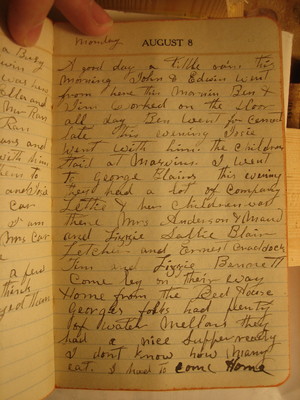 a Baby
was her
Ella and
Mrs Ran
Ran
and
with him
them to
and
car
I am
Mrs Car
a few
thank
Monday
AUGUST 8
A good day a little rain this
morning John & Edwin went
from here this Mornin Ben &
Jim Worked on the floor
all day Ben went for
late this evening Irie
went with him. the children
staid at Marvins. I went
to George Blairs this evening
they had a lot of company
Lettie & her children was
there Mrs Anderson & Maud
and Lizzie Sallie Blair
Letcher and Ernest Craddock
Jim and Lizzie Bennett
Come by on their way
Home from the Bed House
Georges folks had plenty
of water Mellons they
had a nice supper really
I don't know how many
eat. I had to come Home